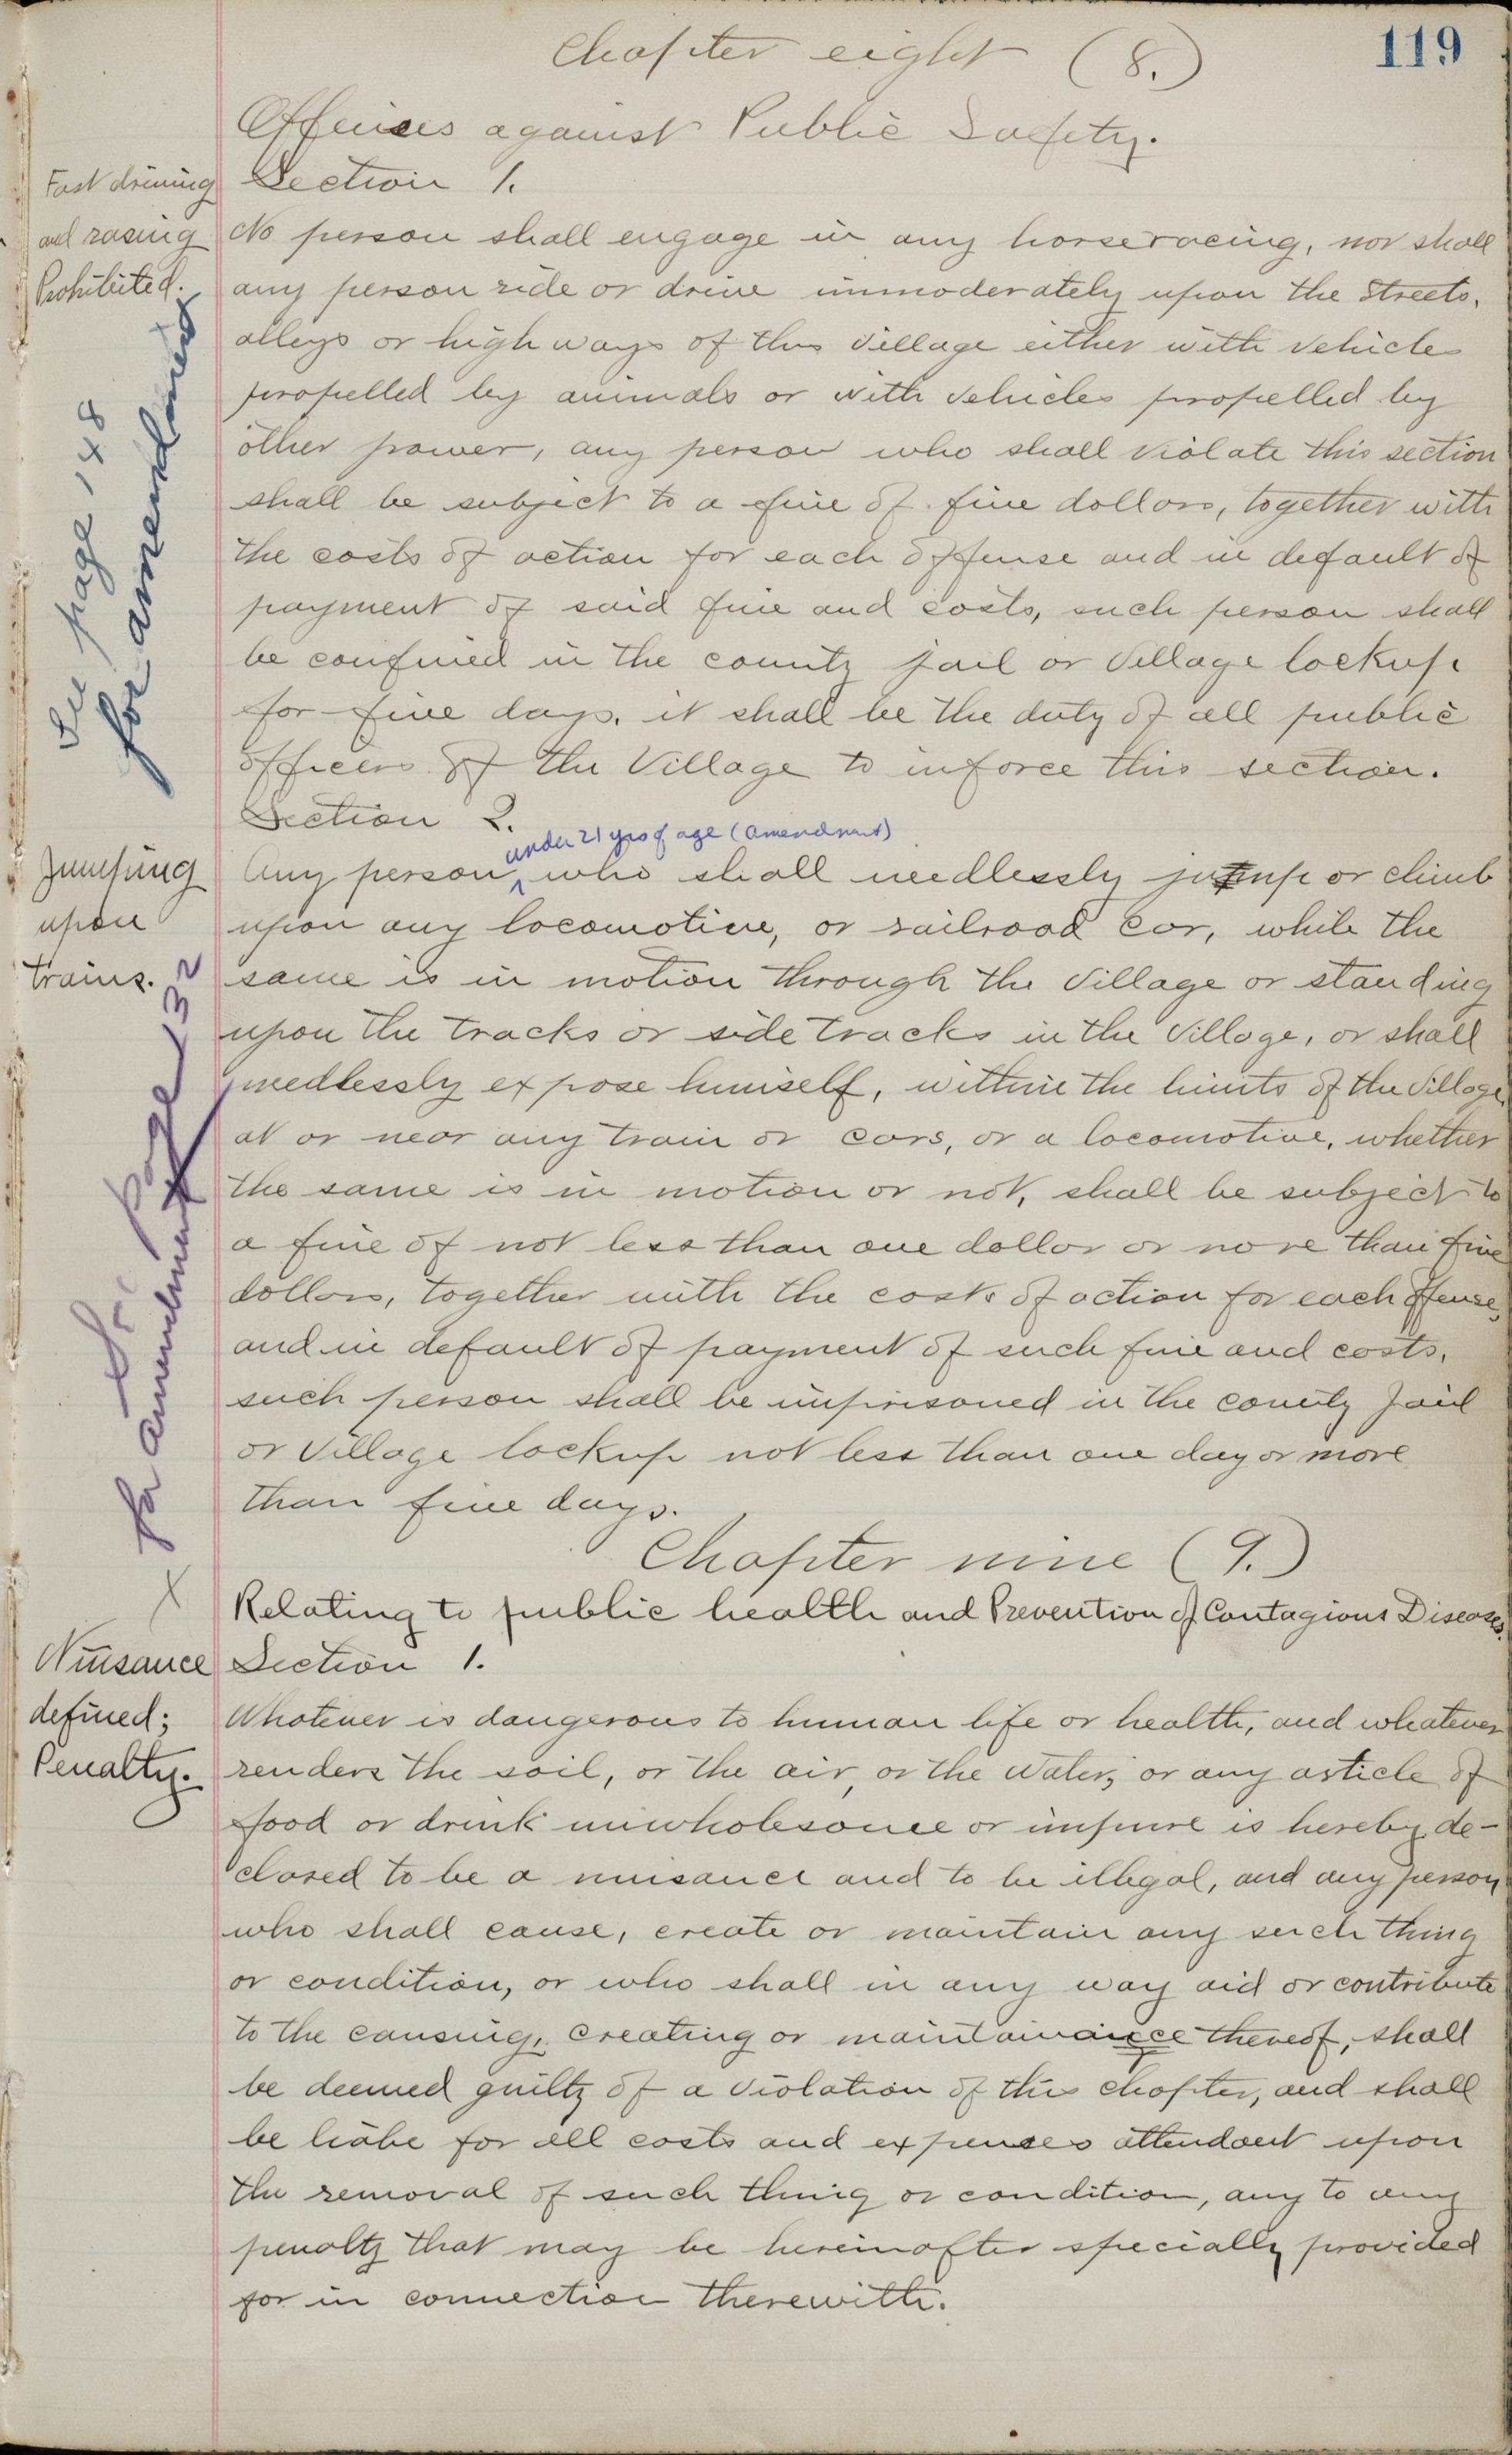 119
Chapter eight (8.)
Offenses against Public Safety.
Fast driving
and rasing
Prohibited.
Section 1.
No person shall engage in any horseracing, nor shall
any person ride or drive immoderately upon the Streets,
alleys or highways of this Village either with vehicles
propelled by animals or with vehicles propelled by
other power, any person who shall violate this section
shall be subject to a fine of five dollars, together with
the costs of action for each offense and in default of
payment of said fine and costs, such person shall
be confined in the county jail or Village lockup
for five days. it shall be the duty of all public
officers of the Village to inforce this section.
See page 148
for amendment
Section 2.
under 21 yrs of age (amendment)
Jumping
upon
trains.
Any person, who shall needlessly jump or climb
upon any locomotive, or railroad car, while the
same is in motion through the Village or standing
upon the tracks or side tracks in the Village, or shall
needlessly expose himself, within the limits of the Village,
at or near any train or cars, or a locomotive, whether
the same is in motion or not, shall be subject to
a fine of not less than one dollar or nore than five
dollars, together with the costs of action for each offense,
and in default of payment of such fine and costs,
such person shall be imprisoned in the county Jail
or Village lockup not less than one day or more
than five days.
See page 132
for amendment
X
Chapter nine (9.)
Relating to public health and Prevention of Contagious Diseases.
Nuisance
defined;
Penalty.
Section 1.
Whatever is dangerous to human life or health, and whatever
renders the soil, or the air, or the water, or any article of
food or drink unwholesome or impure is hereby de-
clared to be a nuisance and to be illegal, and any person
who shall cause, create or maintain any such thing
or condition, or who shall in any way aid or contribute
to the causing, creating or maintainance thereof, shall
be deemed guilty of a violation of this chapter, and shall
be liabe for all costs and expenses attendant upon
the removal of such thing or condition, any to any
penalty that may be hereinafter specially provided
for in connection therewith.